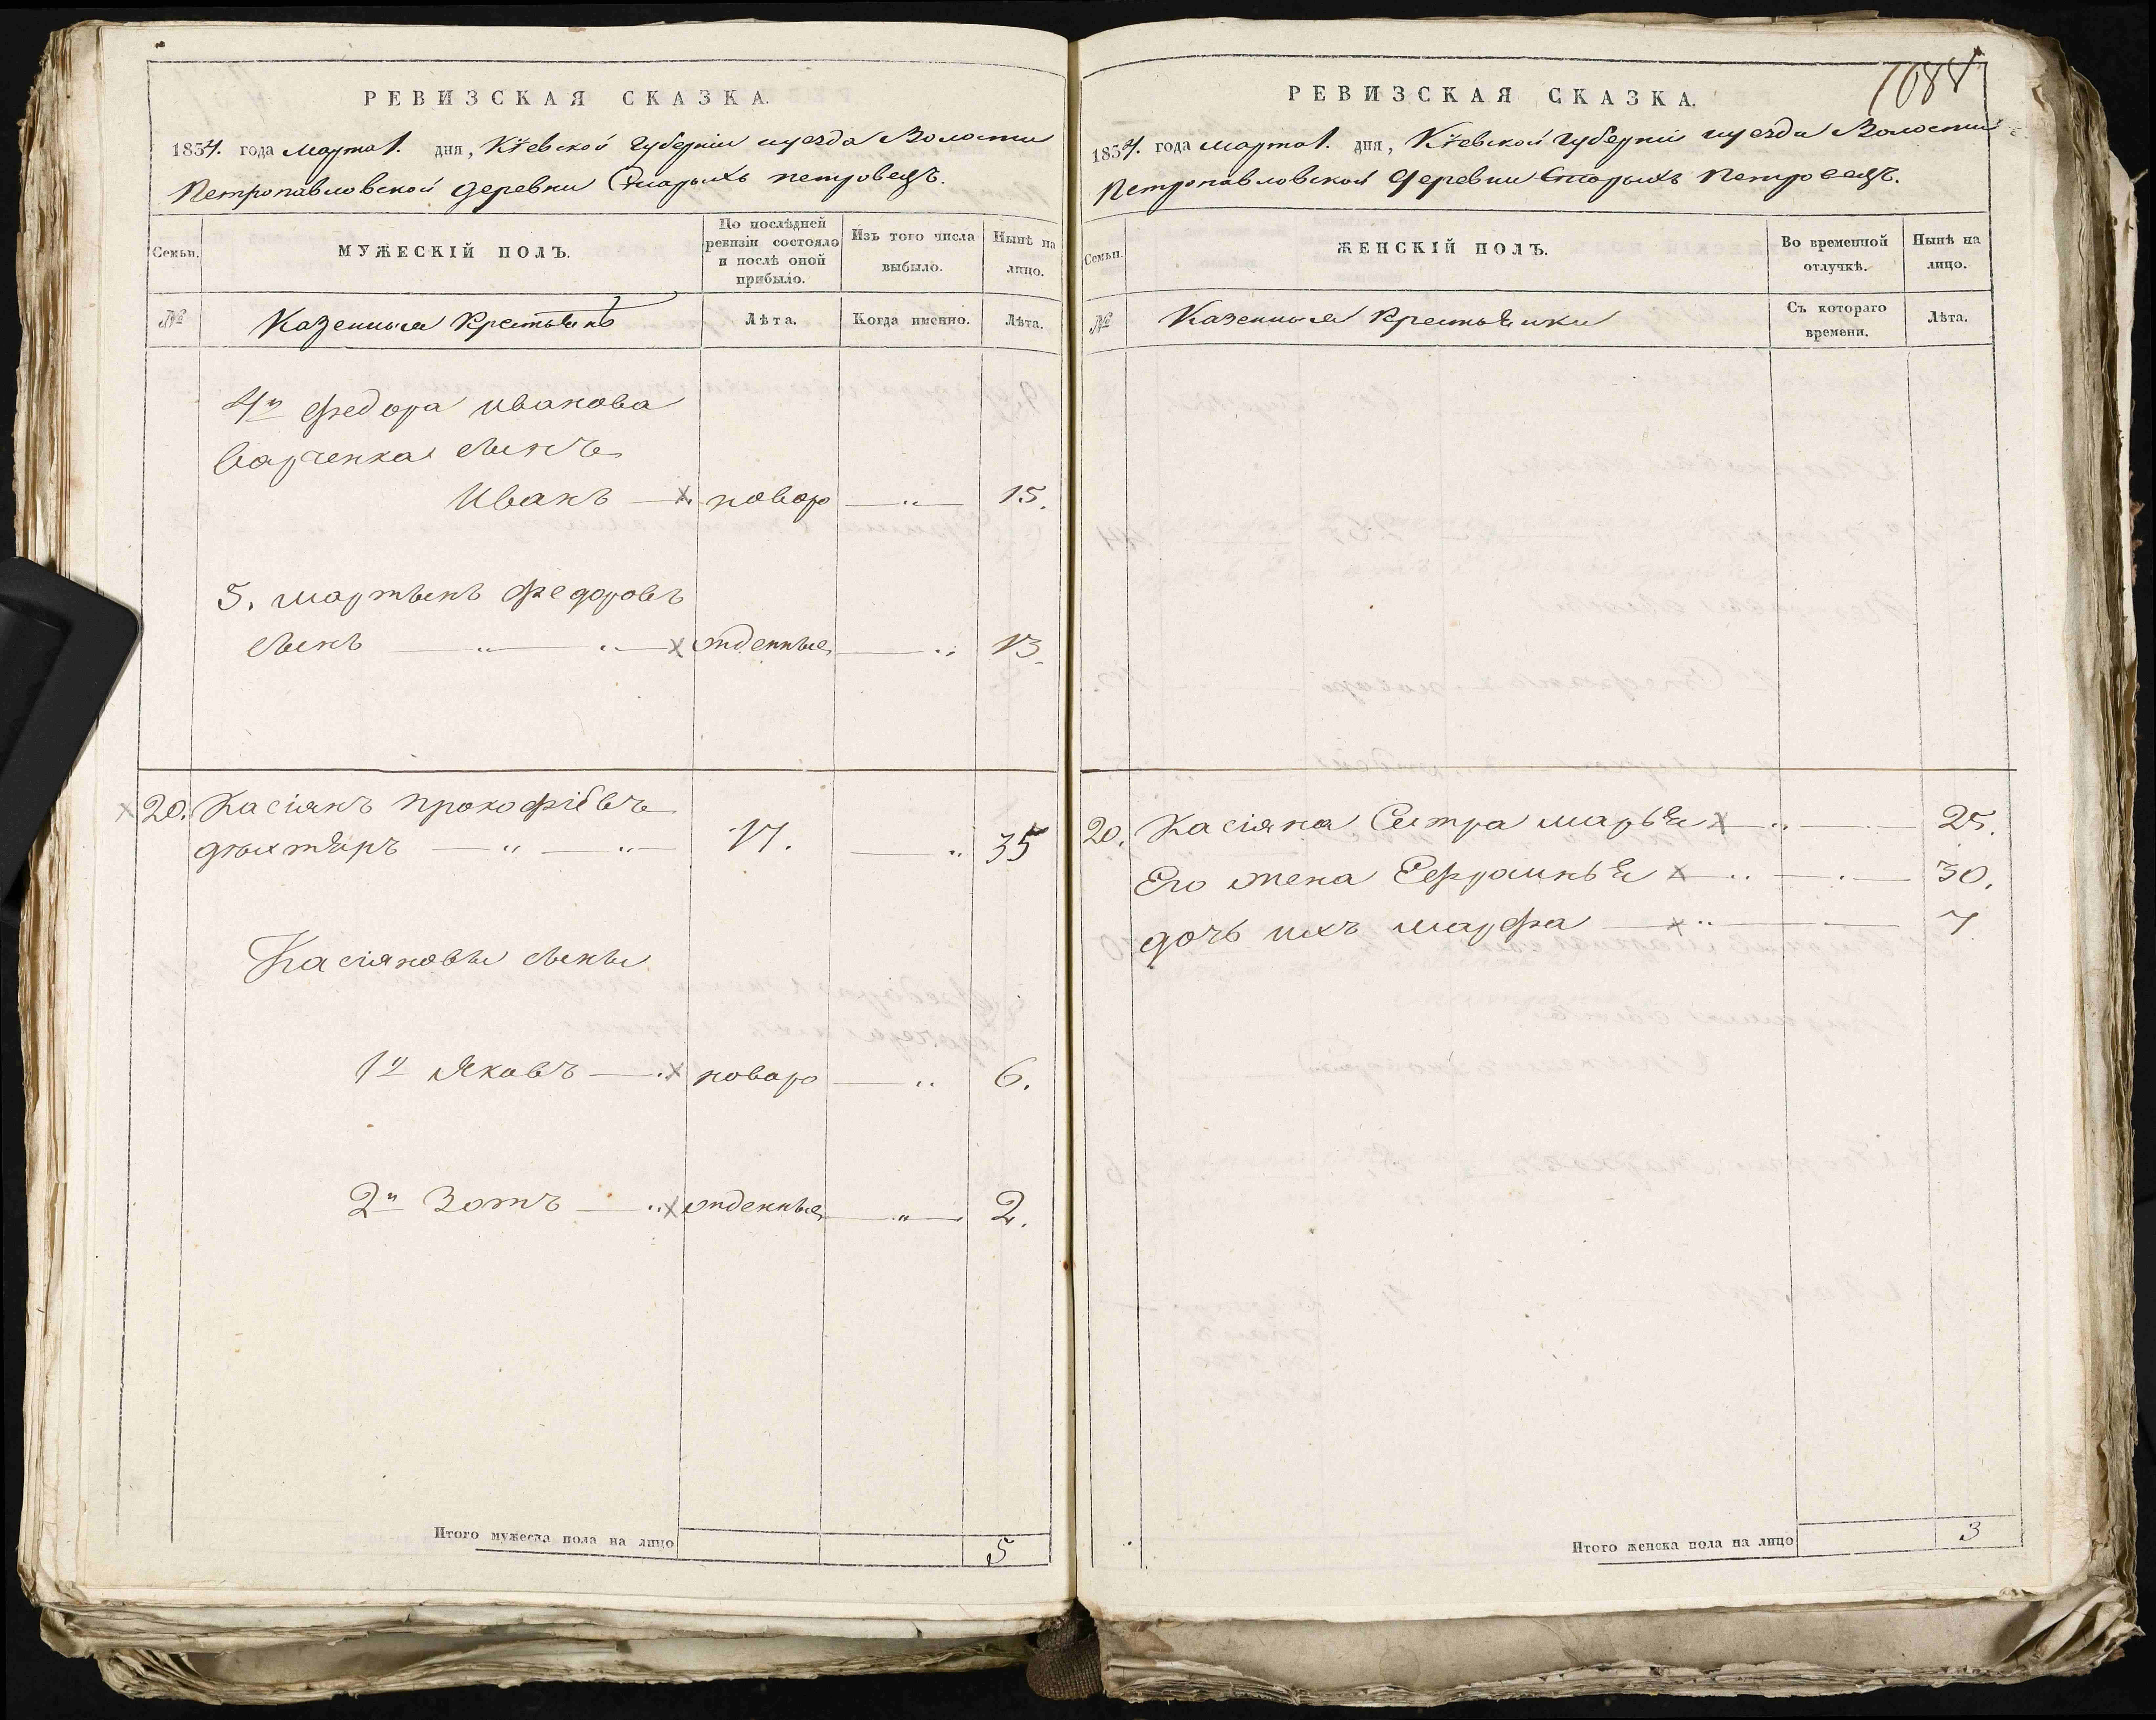 РЕВИЗСКАЯ СКАЗКА.
1854. года марта 1. дня, Кіевской губерніи уезда Волости
Петропавловской деревни Старыхъ петровецъ.
Семьи.
МУЖЕСКІЙ ПОЛЪ.
По послѣдней ревизіи состояло и послѣ оной прибыло.
Изъ того числа выбыло.
Нынѣ на лицо.
№
Казенныя Крестьянѣ
Лѣта.
Когда именно.
Лѣта.
4й Федора иванова
сынъ
Иванъ — х новоро — „ — 15.
5. мартынъ Федоровъ
сынъ — „ — „ — х жденные — „ 13.
х 20. Касіянъ прокофіевъ
— „ — „ — 17. — „ 35
Касіяновы сыны
1й Яковъ — х новоро — „ 6.
2й Зотъ — „ х жденные — „ — 2.
Итого мужеска пола на лицо 5
1088
РЕВИЗСКАЯ СКАЗКА.
1854. года марта 1. дня, Кіевской губерніи уезда Волости
Петропавловской деревни Старыхъ Петровецъ.
Семьи.
ЖЕНСКІЙ ПОЛЪ.
Во временной отлучкѣ.
Нынѣ на лицо.
№
Казенныя Крестьянки
Съ котораго времени.
Лѣта.
20. Касіяна Сестра марья х — „ — 25.
Его жена Ефросинья х — „ — 30.
дочь ихъ марфа — х „ — 7
Итого женска пола на лицо 3